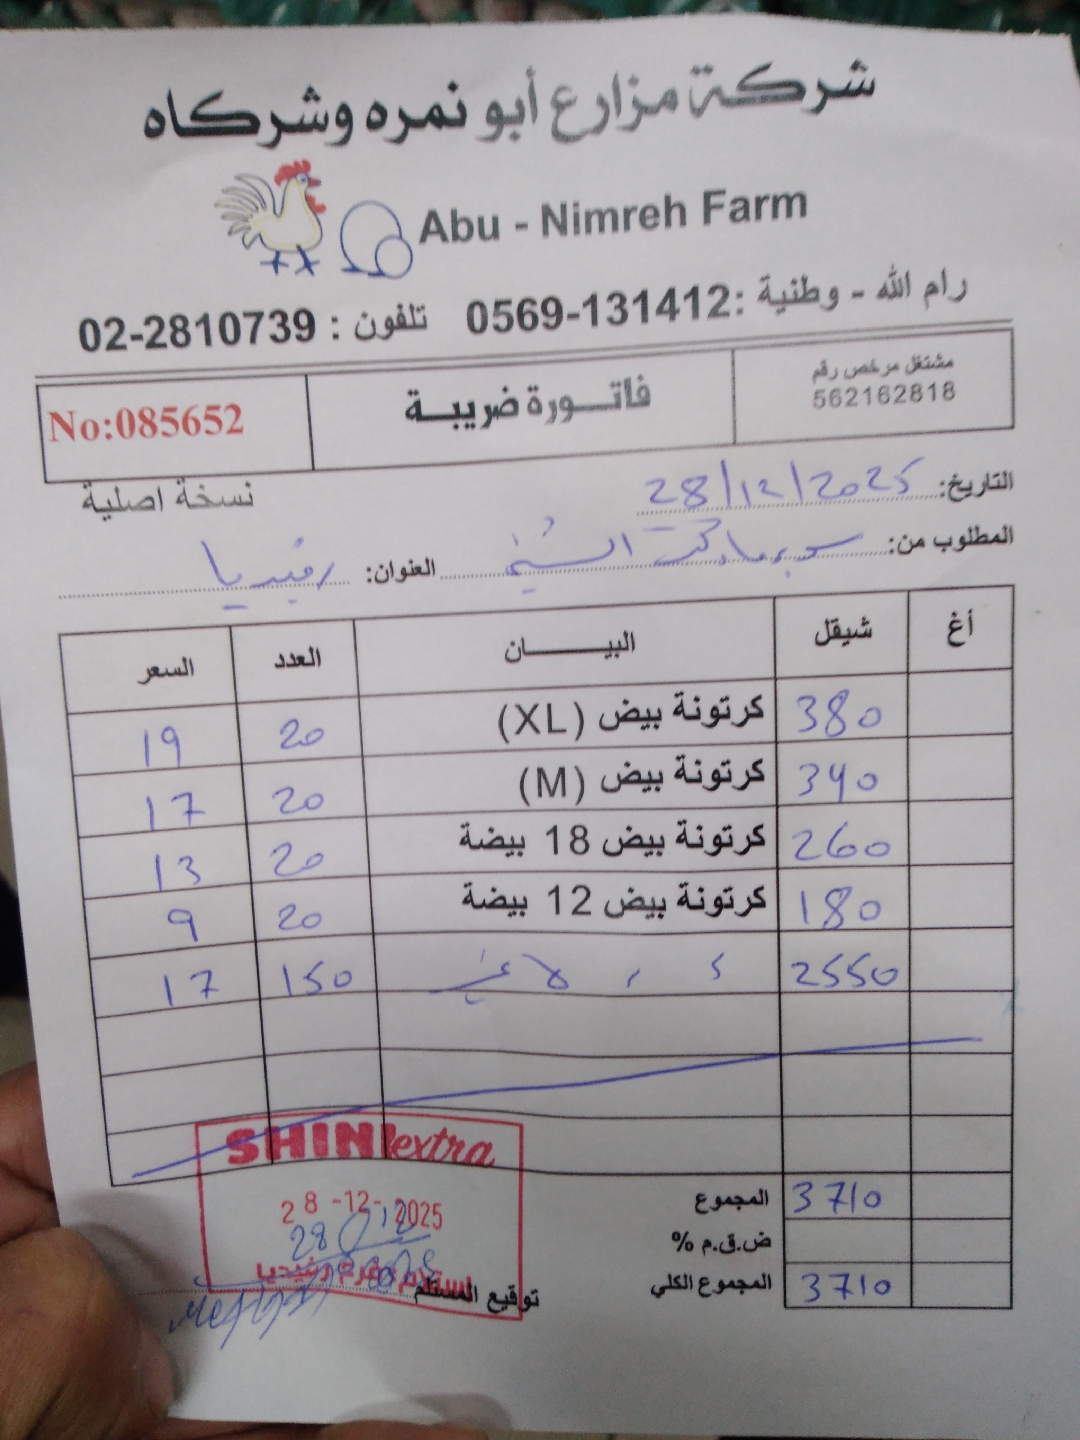 شركة مزارع أبو نمره وشركاه
Abu - Nimreh Farm
رام الله - وطنية : 0569-131412 تلفون : 02-2810739
مشتغل مرخص رقم
562162818
فاتورة ضريبة
No:085652
نسخة اصلية
التاريخ: 28/12/2025
المطلوب من: سوبرماركت الشيخ العنوان: رفيديا
أغ شيقل البيـــــان العدد السعر
380 كرتونة بيض (XL) 20 19
340 كرتونة بيض (M) 20 17
260 كرتونة بيض 18 بيضة 20 13
180 كرتونة بيض 12 بيضة 20 9
2550 150 17
المجموع 3710
ض.ق.م %
المجموع الكلي 3710
توقيع المستلم
SHINI extra
28-12-2025
28/12